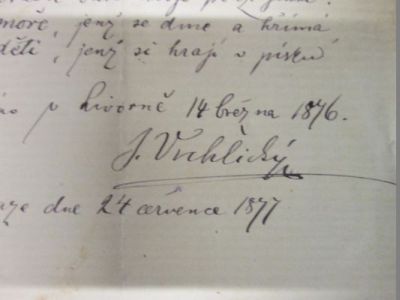 moře, jenž se dme a hřímá
děti, jenž si hrají v písku
v Livorně 14 března 1876.
J. Vrchlický
dne 24 července 1877